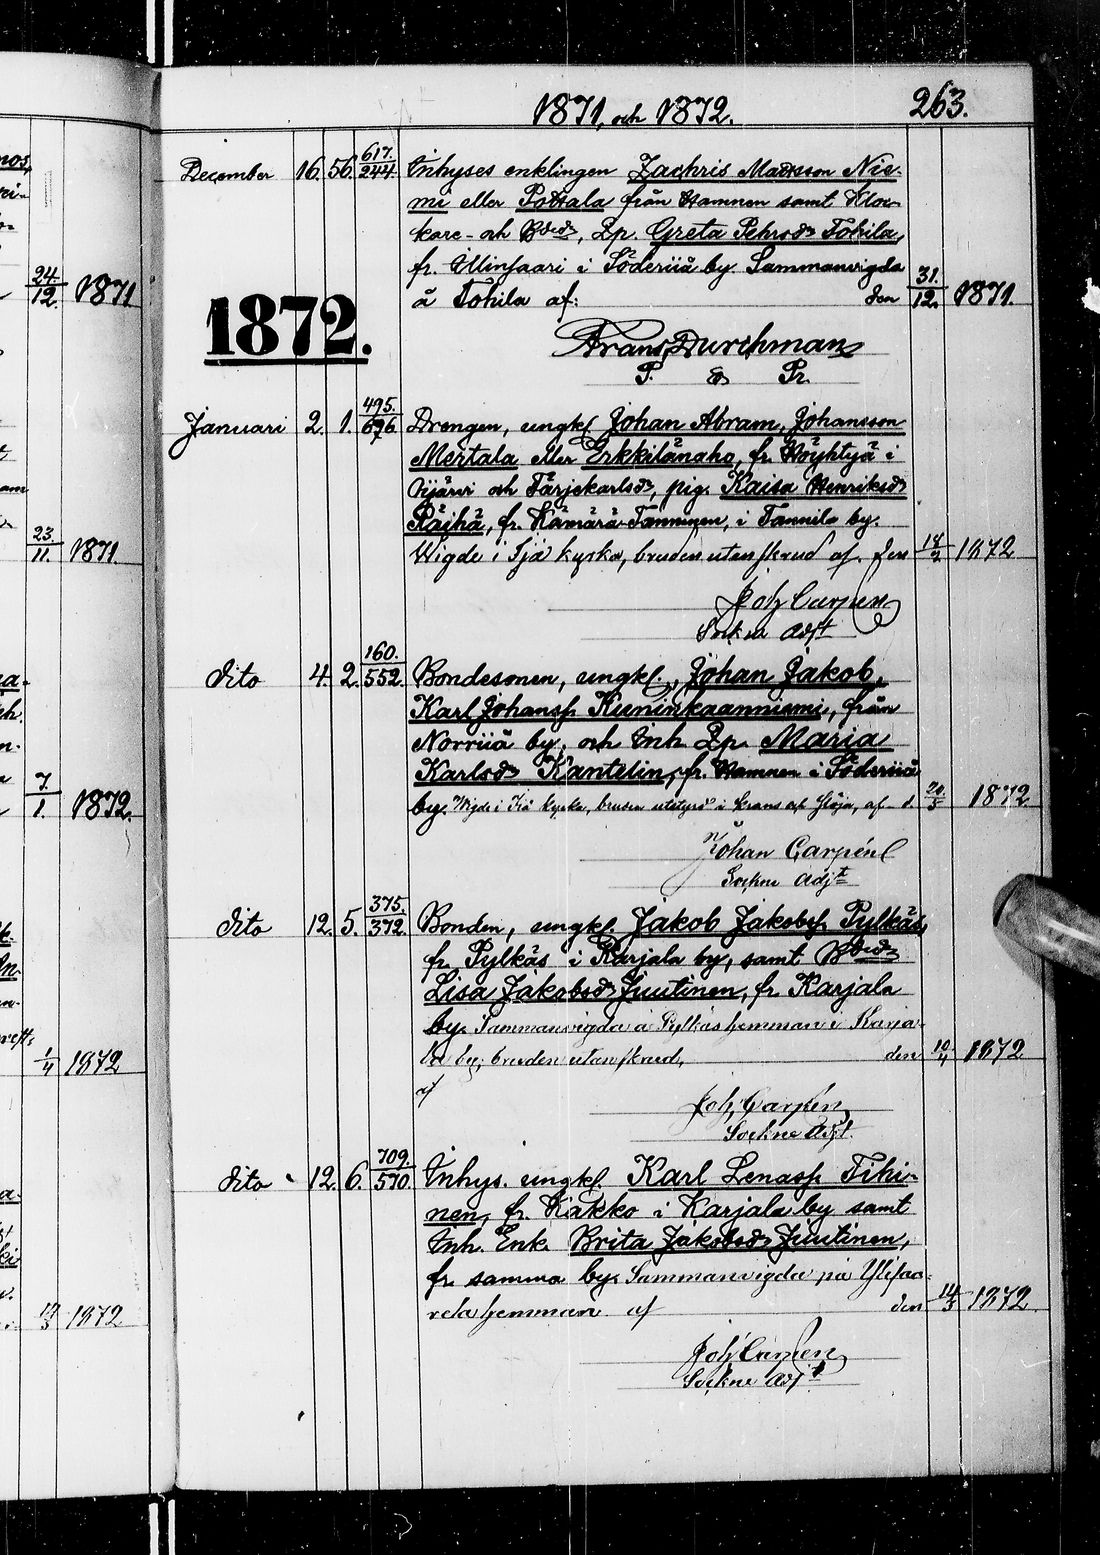 1871, och 1872. 263.
December 16. 56. 617./244. Inhyses enklingen Zachris Mattsson Nie-
mi eller Pottala från Hamnen samt Kloc-
kare- och Bdedr, Pp. Greta Pehrsdr Tohila,
fr. Ulinsaari i Söderiiå by. Sammanvigda
å Tohila af: den 31./12. 1871.
1872.
Frans Durchman
P. & Pr.
Januari 2. 1. 495./676. Drengen, ungkl. Johan Abram, Johansson
Mertala eller Erkkilänaho, fr. Höyhtyä i
Kjärvi och Färjekarlsdr, pig. Kaisa Henriksdr
Räjhä, fr. Hämärä-Tanninen, i Tannila by.
Wigde i Ijå kyrka, bruden utan skrud af. den 18/2 1872
Joh Carpén
Sockne Adjt
dito 4. 2. 160./552. Bondesonen, ungkl., Johan Jakob,
Karl Johanss. Kuninkaanniemi, från
Norriiå by, och Inh. Pp. Maria
Karlsdr Kantelin, fr. Hamnen i Söderiiå
by. Wigde i Ijå kyrka, bruden utstyrd i krans och slöja, af d. /3 1872
Johan Carpén
Sockne Adjt
dito 12. 5. 375./372. Bonden, ungkl. Jakob Jakobss. Pylkäs,
fr. Pylkäs i Karjala by, samt Bdedr
Lisa Jakobsdr Juutinen, fr. Karjala
by. Sammanvigda å Pylkäs hemman i Karja-
la by; bruden utan skrud, den 10/4 1872
af
Joh, Carpén
Sockne Adjt.
dito 12. 6. 709./570 Inhys. ungkl. Karl Lenass. Tihi-
nen, fr. Kakko i Karjala by samt
Inh. Enk. Brita Jakobsdr Juutinen,
fr. samma by. Sammanvigda på Ylisaa-
rela hemman af den 14/3 1872
Joh Carpén
Sockne Adjt
24/12. 1871
23./11. 1871.
7./1. 1872.
1/4 1872
/3 1872